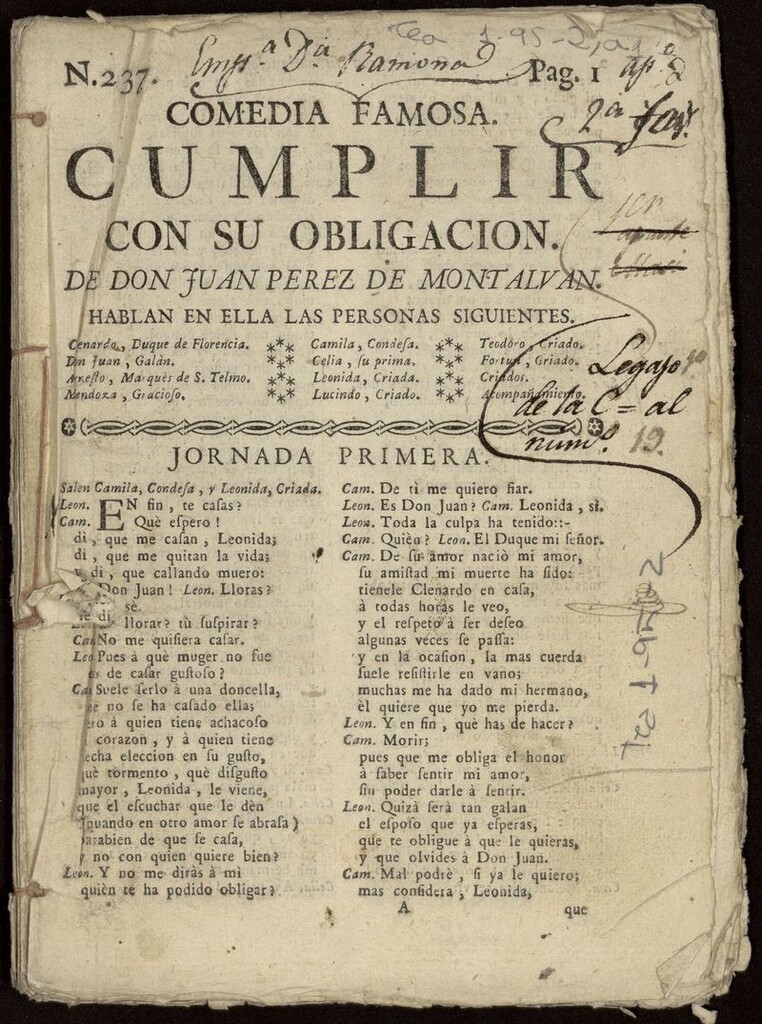 Tea 1-95-2, a
N.237. Emp.ª D.ª Ramona Pag. 1 ap.º 2
COMEDIA FAMOSA.
2ª
CUMPLIR
CON SU OBLIGACION.
DE DON JUAN PEREZ DE MONTALVAN.
HABLAN EN ELLA LAS PERSONAS SIGUIENTES.
Cenardo, Duque de Florencia.
Don Juan, Galàn.
Arnesto, Marquès de S. Telmo.
Mendoza, Gracioso.
Camila, Condesa.
Celia, su prima.
Leonida, Criada.
Lucindo, Criado.
Teodoro, Criado.
Fortun, Criado.
Criados.
Acompañamiento.
Legajo 1º
de la C = al
num.º 19.
JORNADA PRIMERA.
Salen Camila, Condesa, y Leonida, Criada.
Leon. EN fin, te casas?
Cam. Què espero!
dì, que me casan, Leonida;
dì, que me quitan la vida;
y dì, que callando muero:
Don Juan! Leon. Lloras?
sè.
llorar? tù suspirar?
Ca No me quisiera casar.
Leo Pues à què muger no fue
de casar gustoso?
Ca Suele serlo à una doncella,
no se ha casado ella;
à quien tiene achacoso
corazon, y à quien tiene
echa eleccion en su gusto,
què tormento, què disgusto
mayor, Leonida, le viene,
que el escuchar que le dèn
(quando en otro amor se abrasa)
parabien de que se casa,
y no con quien quiere bien?
Leon. Y no me diràs à mi
quièn te ha podido obligar?
Cam. De tì me quiero fiar.
Leon. Es Don Juan? Cam. Leonida, sì.
Leon. Toda la culpa ha tenido::-
Cam. Quièn? Leon. El Duque mi señor.
Cam. De su amor naciò mi amor,
su amistad mi muerte ha sido:
tienele Clenardo en casa,
à todas horas le veo,
y el respeto à ser deseo
algunas veces se passa:
y en la ocasion, la mas cuerda
suele resistirle en vano;
muchas me ha dado mi hermano,
èl quiere que yo me pierda.
Leon. Y en fin, què has de hacer?
Cam. Morir;
pues que me obliga el honor
à saber sentir mi amor,
sin poder darle à sentir.
Leon. Quizà serà tan galan
el esposo que ya esperas,
que te obligue à que le quieras,
y que olvides à Don Juan.
Cam. Mal podrè, si ya le quiero;
mas considera, Leonida,
A que
Tea 1-95-2